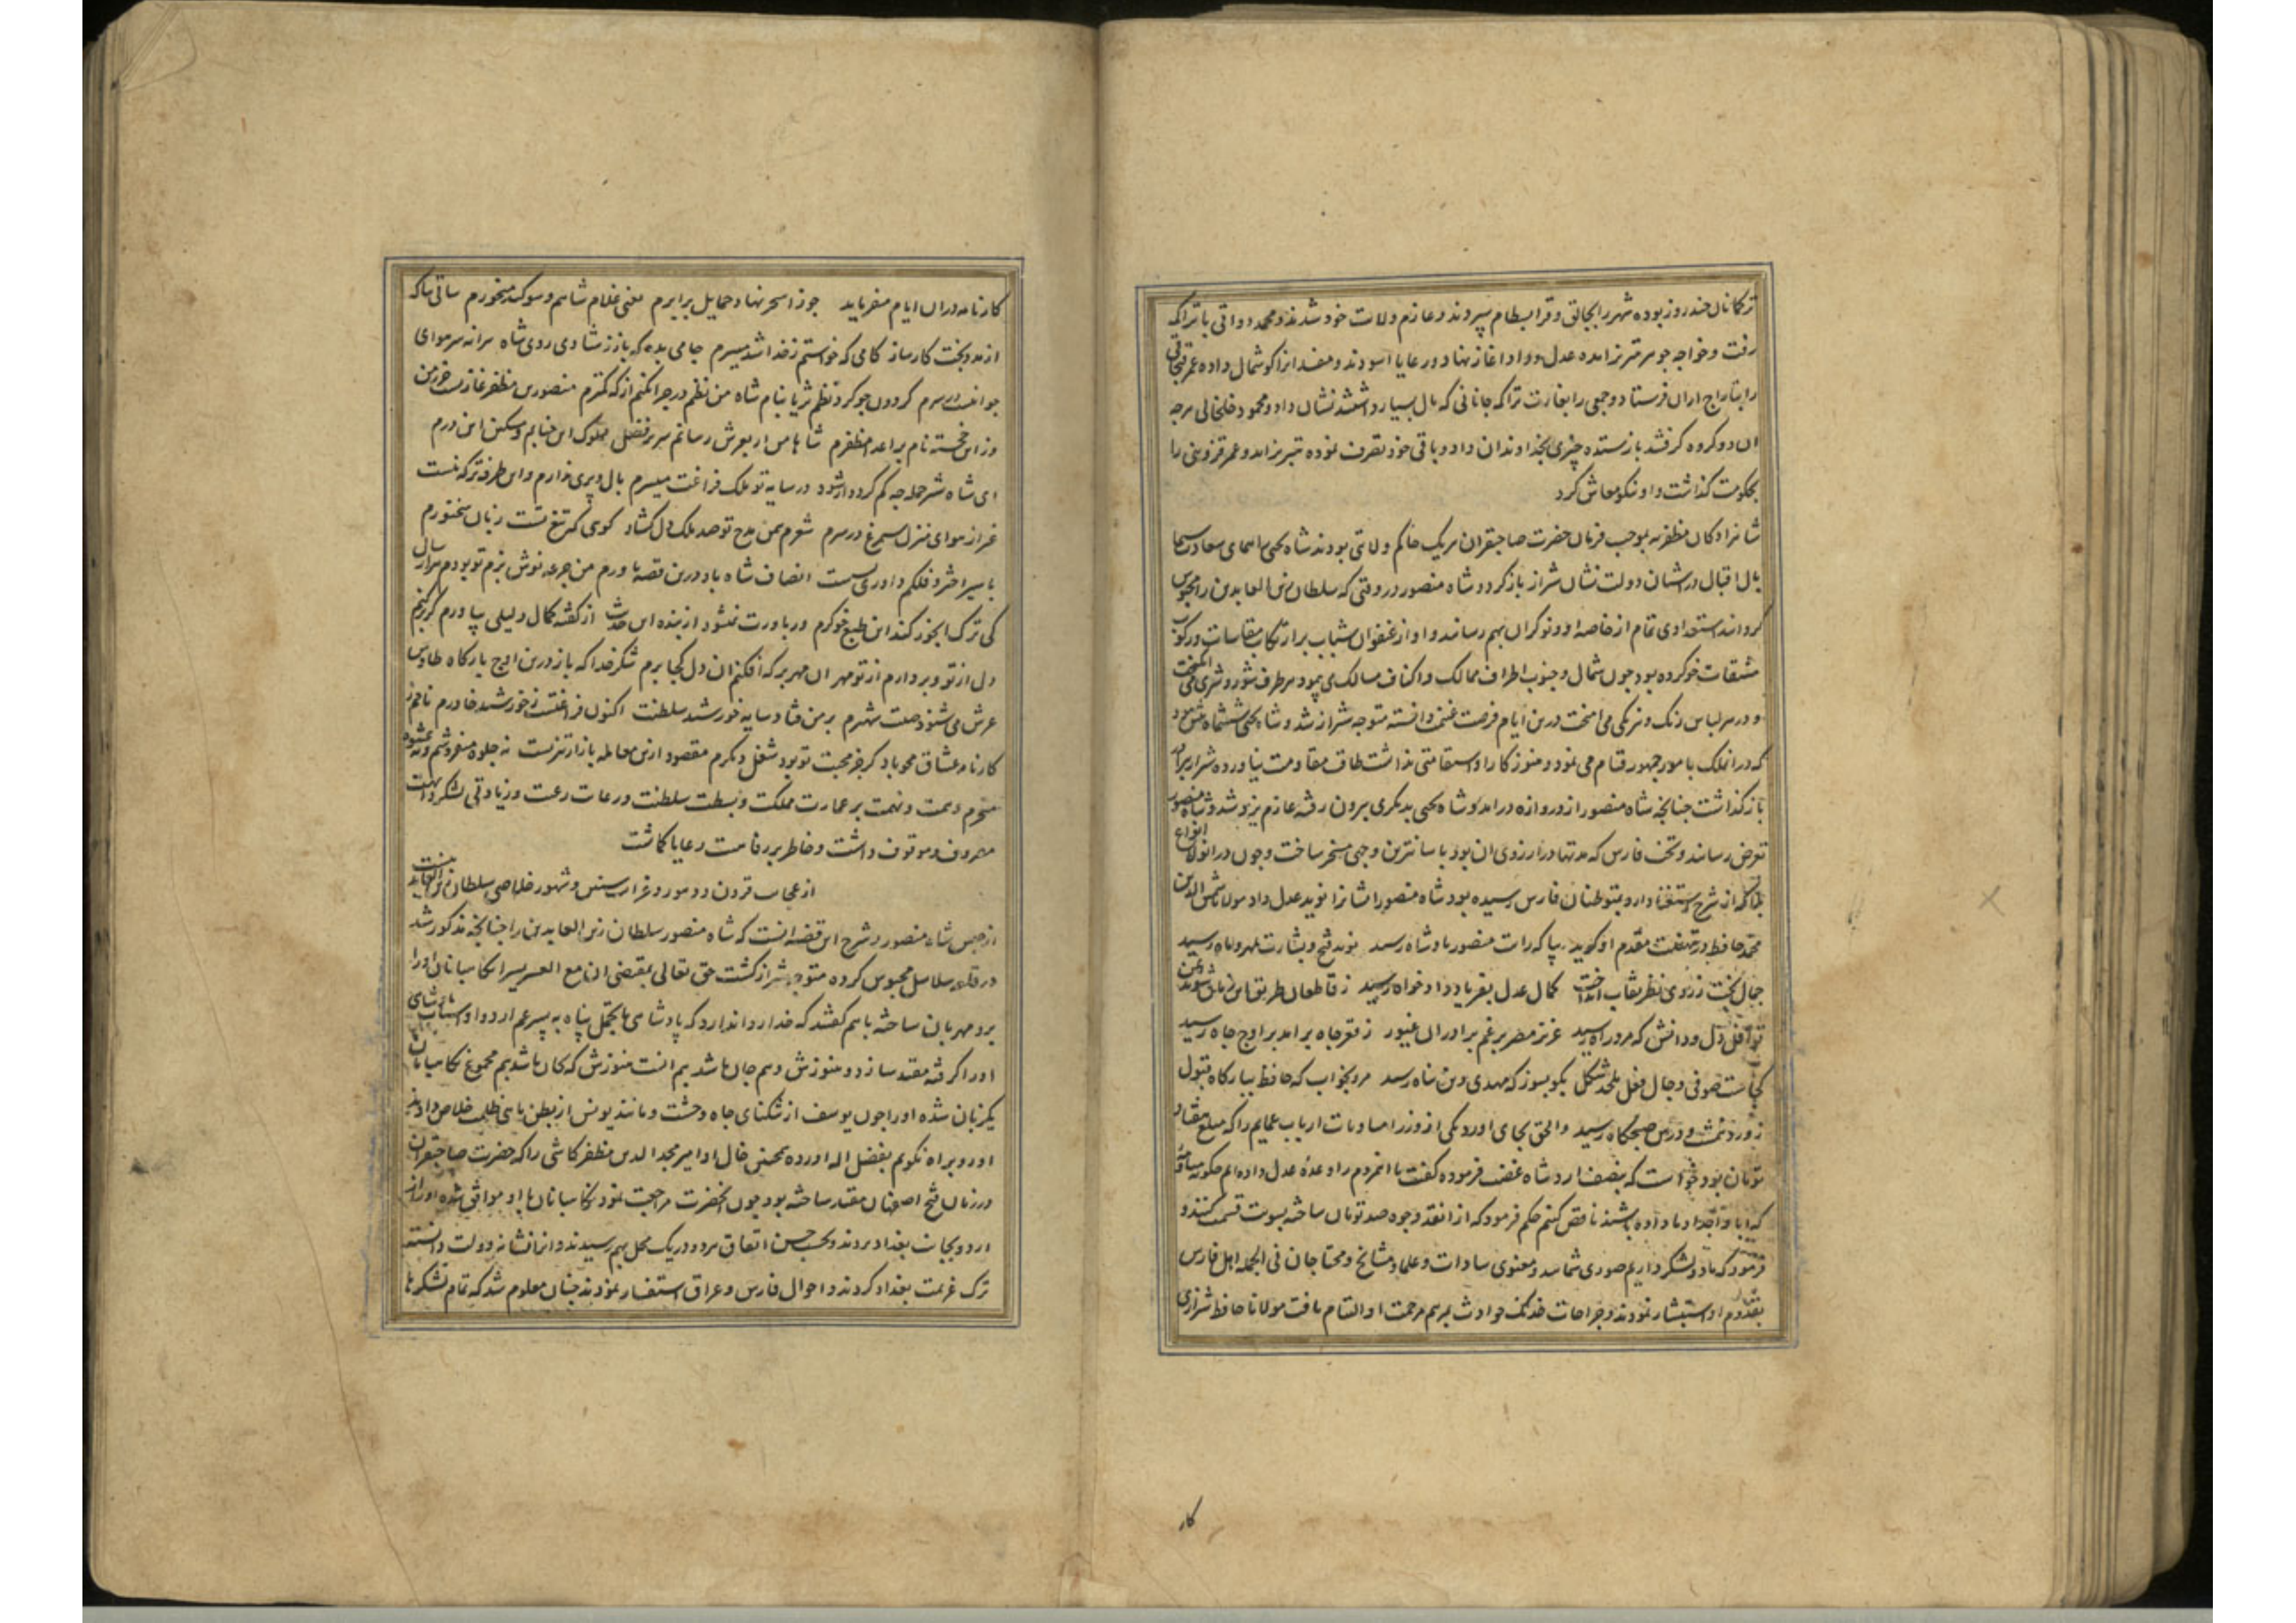 ترکمانان چند روز بوده شهر را بجالق و قرابسطام سپردند و عازم ولایت خود شدند و محمد دواتی با تراکمه
رفت و خواجه جوهر تبریز آمده عدل و داد آغاز نهاد و رعایا آسودند و مفسدانرا گوشمال داده عمر قبچاقی
را بتاراج اران فرستاد و جمعی را بغارت تراکمه جانانی که مال بسیار داشتند نشان داد و محمود خلخالی هرچه
آن دو گروه گرفتند باز ستده چیزی بخداوندان داد و باقی خود تصرف نموده تبریز آمد و عمر قزوینی را
بحکومت گذاشت و او نیکو معاش کرد
شاهزادگان مظفریه بموجب فرمان حضرت صاحبقران هریک حاکم ولایتی بودند شاه یحیی همای سعادت
بال اقبال در آشیان دولت نشان شیراز باز کرد و شاه منصور در وقتی که سلطان زین العابدین را محبوس
گرداند استعدادی تمام از خاصه او و نوکران بهم رسانید و او از عنفوان شباب بر ارتکاب مقاسات و رکوب
مشقات خو کرده بود چون شمال و جنوب اطراف ممالک و اکناف مسالک می پیمود هر طرف شور و شری می انگیخت
و در هر لباس رنگ و نیرنگی می آمیخت درین ایام فرصت غنیمت دانسته متوجه شیراز شد و شاه یحیی ششماه
که در آن ملک بامور جمهور قیام می نمود و هنوز کار او استقامتی نداشت طاقت مقاومت نیاورده شیراز
باز گذاشت چنانچه شاه منصور از دروازه درآمد و شاه یحیی بدیگری بیرون رفته عازم یزد شد و شاه منصور
تعرض رسانید و تخت فارس که مدتها در آرزوی آن بود باسانترین وجهی مسخر ساخت و چون در آن ولا انواع
بلا که از شرح استغنا دارد بمتوطنان فارس رسیده بود شاه منصور ایشانرا نوید عدل داد مولانا شمس الدین
محمد حافظ در تهنیت مقدم او گوید بیا که رایت منصور پادشاه رسید نوید فتح و بشارت بمهر و ماه رسید
جمال بخت ز روی ظفر نقاب انداخت کمال عدل بفریاد دادخواه رسید ز قاطعان طریق این زمان شوند ایمن
قوافل دل و دانش که مرد راه رسید عزیز مصر برغم برادران غیور ز قعر چاه برآمد بر اوج جاه رسید
کجاست صوفی دجال فعل ملحد شکل بگو بسوز که مهدی دین پناه رسید مرو بخواب که حافظ ببارگاه قبول
ز ورد نیمشب و درس صبحگاه رسید والحق بجای آورد یکی از وزرا مساومات ارباب عمایم را که مبلغ هفتاد
تومان بود خواست که بنصف آرد شاه غضب فرموده گفت ما مردم را وعده عدل داده ایم چگونه
که آبا و اجداد ما داده باشند ناقص کنیم حکم فرمود که از نقد وجوه صد تومان ساخته بسویت قسمت کنند و
فرمود که ما دو لشکر داریم صوری شمایید و معنوی سادات و علما و مشایخ و محتاجان فی الجمله اهل فارس
بقدوم او استبشار نمودند و جراحات خدنگ حوادث بمرهم مرحمت او التیام یافت مولانا حافظ شیرازی
کار
کارنامه در آن ایام میفرماید جوزا سحر نهاد حمایل برابرم یعنی غلام شاهم و سوگند میخورم ساقی بیا که
از مدد بخت کارساز کامی که خواستم ز خدا شد میسرم جامی بده که باز ز شادی روی شاه پیرانه سر هوای
جوانیست در سرم گردون چو کرد نظم ثریا بنام شاه من نظم در چرا نکنم از که کمترم منصور بن مظفر غازیست حرز من
وز این خجسته نام بر اعدا مظفرم شاها من ار بعرش رسانم سریر فضل مملوک این جنابم و مسکین این درم
ای شاه شیر حمله چه کم گردد ار شود در سایه تو ملک فراغت میسرم بال و پری ندارم و این طرفه تر که نیست
غیر از هوای منزل سیمرغ در سرم شعرم بیمن مدح تو صد ملک دل گشاد گویی که تیغ تست زبان سخنورم
با سیر اختر و فلکم داوری بسیست انصاف شاه باد درین قصه یاورم من جرعه نوش بزم تو بودم هزار سال
کی ترک آبخور کند این طبع خوگرم ور باورت نمیشود از بنده این حدیث از گفته کمال دلیلی بیاورم گر برکنم
دل از تو و بردارم از تو مهر آن مهر بر که افکنم آن دل کجا برم شکر خدا که باز درین اوج بارگاه طاوس
عرش می شنود صیت شهپرم بر من فتاد سایه خورشید سلطنت اکنون فراغتست ز خورشید خاورم نامم ز
کارنامه عشاق محو باد گر جز محبت تو بود شغل دیگرم مقصود ازین معامله بازار تیزیست نه جلوه میفروشم و نه عشوه
میخرم و همت و نهمت بر عمارت مملکت و بسطت سلطنت و رعایت رعیت و زیادتی لشکر
مصروف و موقوف داشت و خاطر بر رفاهیت رعایا گماشت
از عجایب قرون و دهور و غرایب سنین و شهور خلاصی سلطان زین العابدین است
از حبس شاه منصور و شرح این قضیه آنست که شاه منصور سلطان زین العابدین را چنانچه مذکور شد
در قلعه سلاسل محبوس کرده متوجه شیراز گشت حق تعالی بمقتضی ان مع العسر یسرا نگاهبانان او را
برو مهربان ساخته باهم گفتند که خدا روا ندارد که پادشاهی با تجمل پناه به پسر عم آرد و او اسباب پادشاهی
او را گرفته مقید سازد و هنوزش دیم جان باشدیم آنست هنوزش که کان باشدیم مجموع نگاهبانان
یکزبان شده او را چون یوسف از تنگنای چاه وحشت و مانند یونس از بطن ماهی ظلمت خلاص دادند
اورو براه نکویم بفضل اله آورده بمحبی خال او امیر مجد الدین مظفر کاشی را که حضرت صاحبقران
در زمان فتح اصفهان مقید ساخته بود چون آن حضرت مراجعت نمود نگاهبانان با او موافق شده او را از
اردو بجانب بغداد بردند و بحسب حسن اتفاق هر دو در یک محل بهم رسیدند و آنرا نشانه دولت دانسته
ترک عزیمت بغداد کردند و احوال فارس و عراق استفسار نمودند چنان معلوم شد که تمام لشکرها